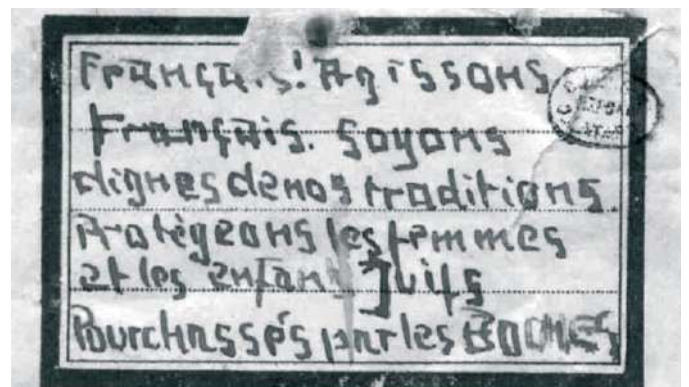 Français! Agissons
Français. Soyons
dignes de nos traditions.
Protégeons les femmes
et les enfans Juifs
Pourchassés par les BOCHES